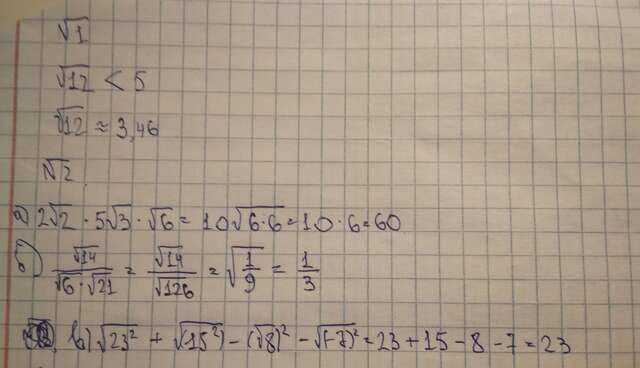 √1
√12 < 5
√12 ≈ 3,46
√2.
а) 2√2 · 5√3 · √6 = 10√6·6 = 10 · 6 = 60
б) √14/√6·√21 = √14/√126 = √1/9 = 1/3
в) √23² + √(-15²) - (√8)² - √(-7)² = 23 + 15 - 8 - 7 = 23